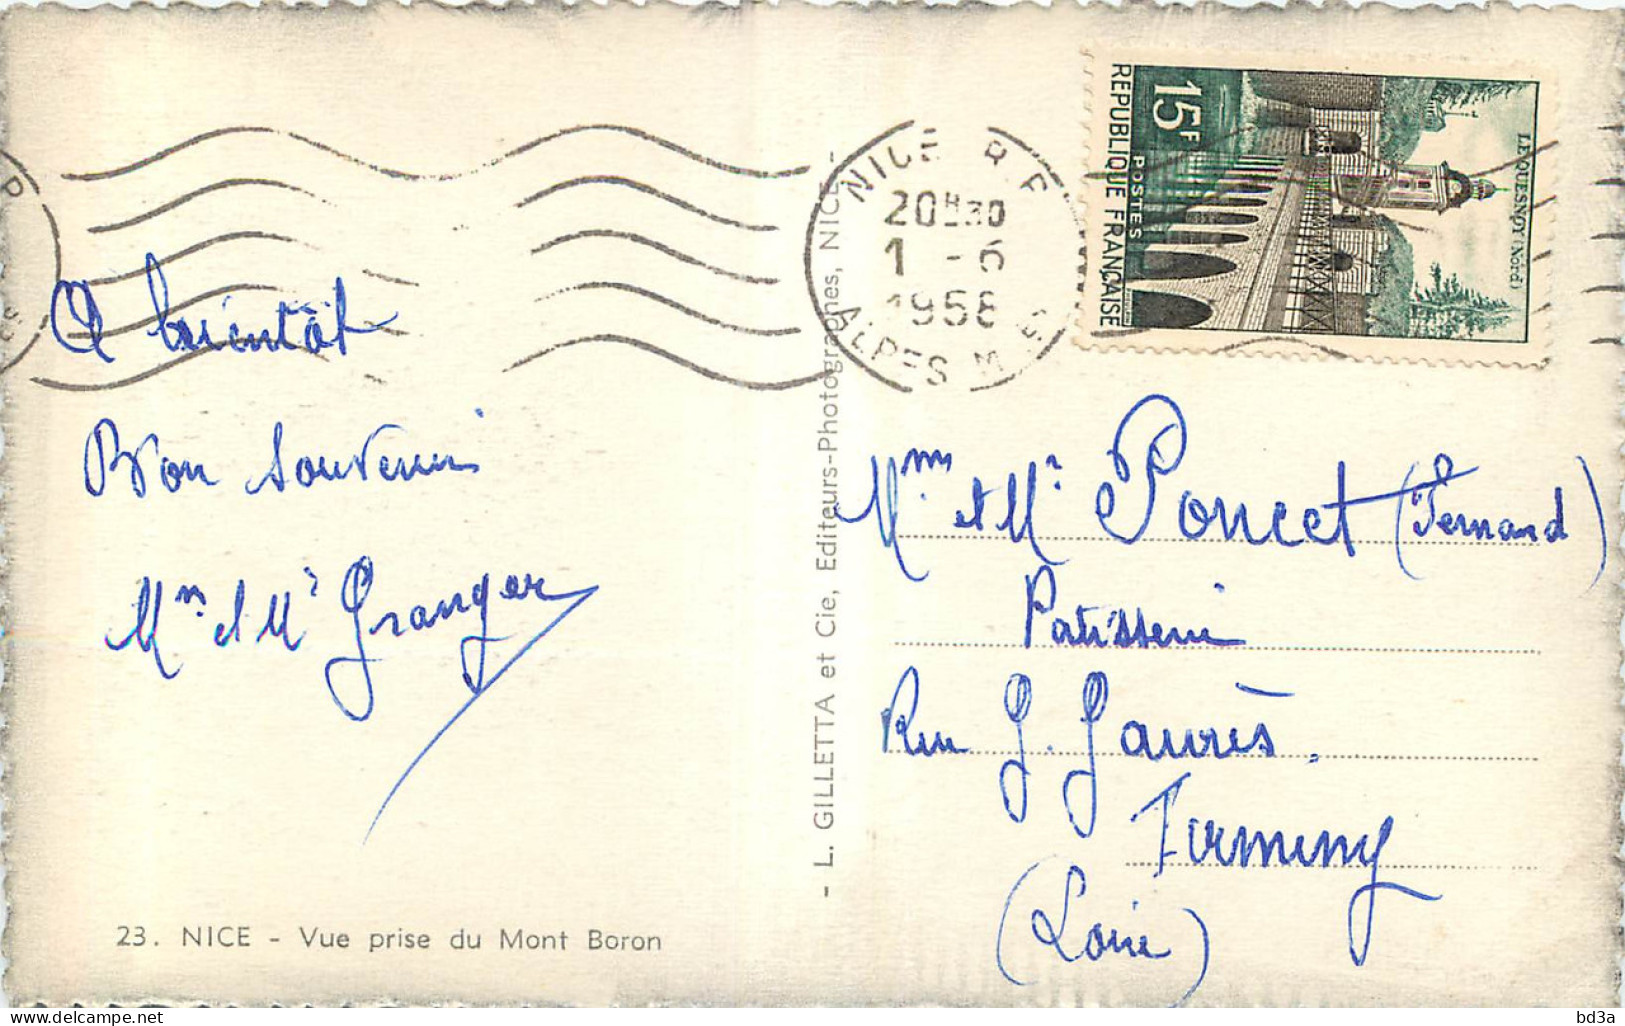 A bientôt
Bon Souvenir
Mme et Mr Granger
23. NICE - Vue prise du Mont Boron
- L. GILLETTA et Cie, Editeurs-Photographes, NICE -
NICE R.P.
20H30
1 - 6
1958
ALPES M.
15F
POSTES
REPUBLIQUE FRANÇAISE
LE QUESNOY (Nord)
Mme et Mr Poncet (Fernand)
Patisserie
Rue J. Jaurès.
Firminy
(Loire)
bd3a